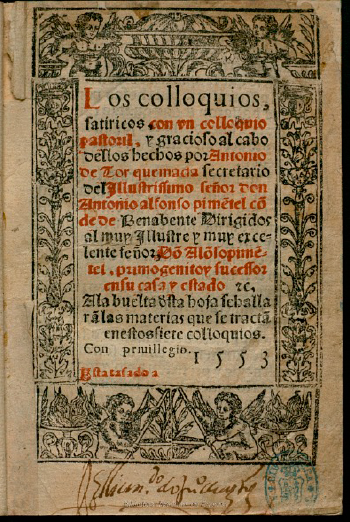 Los colloquios,
satiricos con vn colloquio
pastoril, y gracioso al cabo
dellos hechos por Antonio
de Torquemada secretario
del Illustrissimo señor don
Antonio alfonso pimẽtel cõ
de de Benabente Dirigidos
al muy Illustre y muy exce-
lente señor Dõ Alõso pimẽ-
tel, primogenito y sucessor
en su casa y estado ⁊c.
A la buelta ďsta hoja se halla
rã las materias que se tractã
en estos siete colloquios.
Con priuillegio. 1553
Esta tasado a